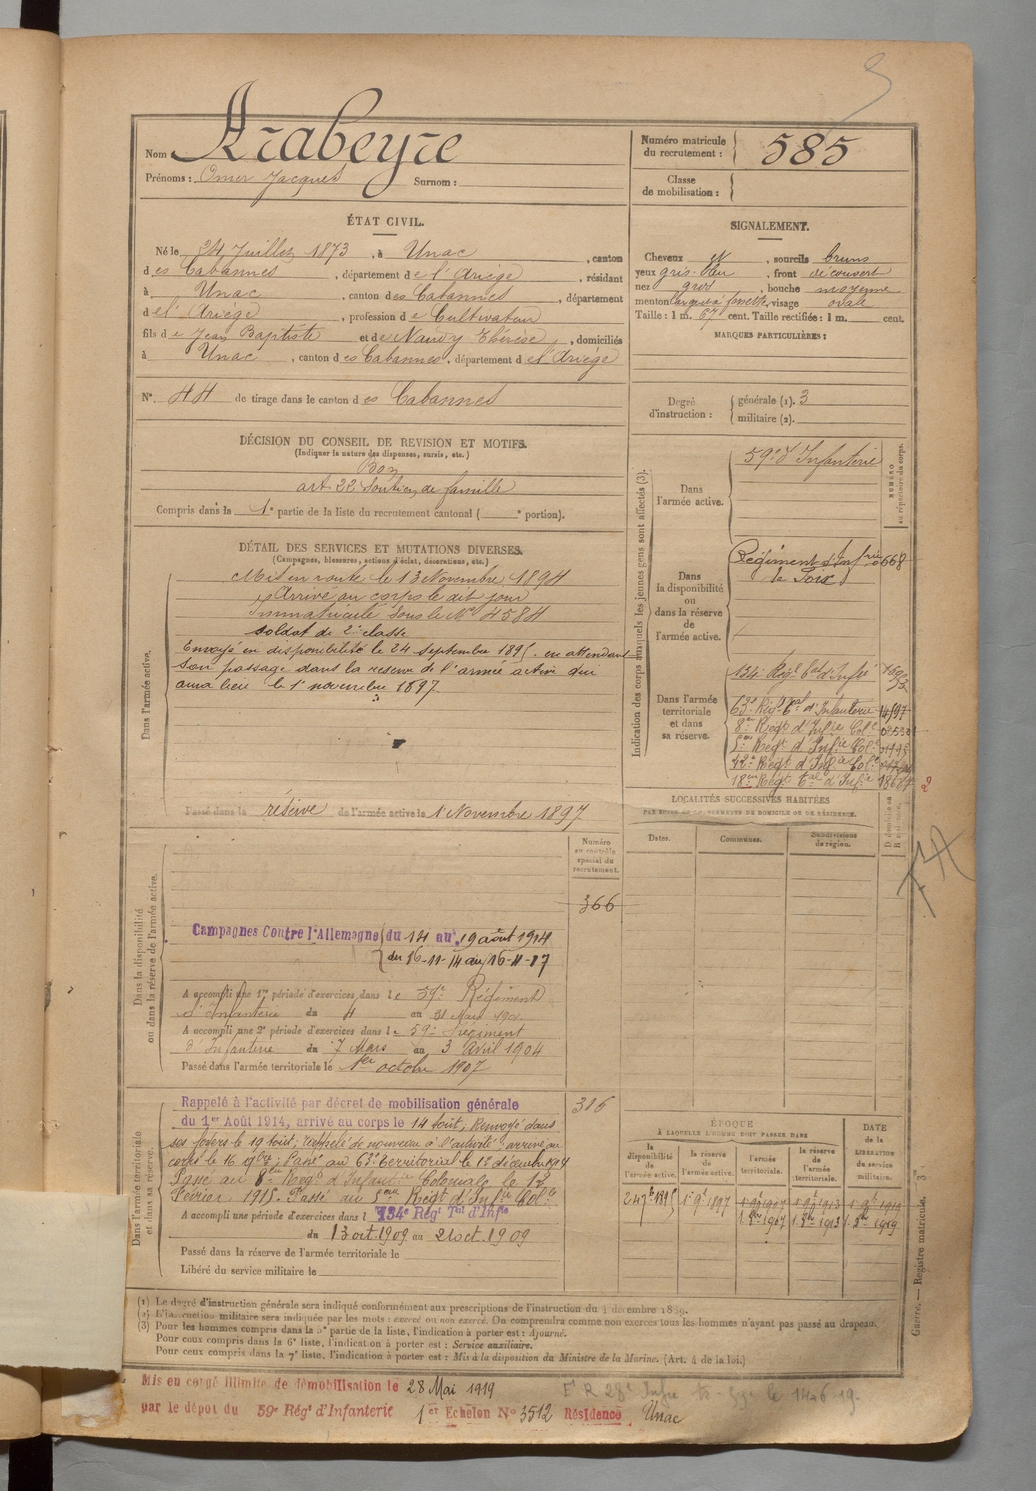 Nom Arabeyre
Prénoms : Omer Jacques Surnom :
Numéro matricule du recrutement : 585
Classe de mobilisation :
ÉTAT CIVIL.
Né le 24 Juillet 1873, à Unac, canton
des Cabannes, département de l'Ariège, résidant
à Unac, canton des Cabannes, département
de l'Ariège, profession de Cultivateur
fils de Jean Baptiste et de Naudy Thérèse, domiciliés
à Unac, canton des Cabannes, département de l'Ariège
N° 44 de tirage dans le canton des Cabannes
SIGNALEMENT.
Cheveux et, sourcils bruns
yeux gris-bleu, front découvert
nez gros, bouche moyenne
menton large à fossette, visage ovale
Taille : 1 m. 67 cent. Taille rectifiée : 1 m. cent.
MARQUES PARTICULIÈRES :
Degré d'instruction : générale (1). 3
militaire (2).
DÉCISION DU CONSEIL DE REVISION ET MOTIFS.
(Indiquer la nature des dispenses, sursis, etc.)
Bon
art 22 Soutien de famille
Compris dans la 1e partie de la liste du recrutement cantonal ( e portion).
DÉTAIL DES SERVICES ET MUTATIONS DIVERSES.
(Campagnes, blessures, actions d'éclat, décorations, etc.)
Dans l'armée active.
Mis en route le 13 Novembre 1894
Arrivé au corps le dit jour
Immatriculé sous le No 4584
soldat de 2e classe
Envoyé en disponibilité le 24 septembre 1895. en attendant
son passage dans la réserve de l'armée active qui
aura lieu le 1er novembre 1897.
Passé dans la réserve de l'armée active le 1er Novembre 1897
Indication des corps auxquels les jeunes gens sont affectés (3).
NUMÉRO au répertoire du corps.
Dans l'armée active.
59e d'Infanterie
Dans la disponibilité ou dans la réserve de l'armée active.
Régiment d'Infrie 668
de Foix
Dans l'armée territoriale et dans sa réserve.
134e Régt tal d'Infie
63e Régt tal d'Infanterie 14597
8e Régt d'Infie Cole
5me Régt d'Infie Cole
42e Régt d'Infie Cole
18me Régt tal d'Infie
LOCALITÉS SUCCESSIVES HABITÉES
PAR SUITE DE CHANGEMENTS DE DOMICILE OU DE RÉSIDENCE.
Dates. Communes. Subdivisions de région.
Dans la disponibilité ou dans la réserve de l'armée active.
Numéro au contrôle spécial du recrutement.
366
Campagnes Contre l'Allemagne du 14 au 19 août 1914
du 16-11-14 au 16-11-17
A accompli une 1re période d'exercices dans le 59e Régiment
d'Infanterie du 4 au 31 Mars 1901
A accompli une 2e période d'exercices dans le 59e Régiment
d'Infanterie du 7 Mars au 3 Avril 1904
Passé dans l'armée territoriale le 1er octobre 1907
Dans l'armée territoriale et dans sa réserve.
Rappelé à l'activité par décret de mobilisation générale
du 1er Août 1914, arrivé au corps le 14 août, Renvoyé dans
ses foyers le 19 août, rappelé de nouveau à l'activité arrivé au
corps le 16 9bre; Passé au 63e territorial le 1er décembre 1914
Passé au 8me Regt d'Infantie Coloniale le 12
Février 1915. Passé au 5me Régt d'Infie Colle
A accompli une période d'exercices dans le 134e Régt Tal d'Infie
du 13 oct. 1909 au 21 oct. 1909
Passé dans la réserve de l'armée territoriale le
Libéré du service militaire le
ÉPOQUE
À LAQUELLE L'HOMME DOIT PASSER DANS
la disponibilité de l'armée active. la réserve de l'armée active. l'armée territoriale. la réserve de l'armée territoriale.
DATE de la LIBÉRATION du service militaire.
24 7bre 1895 1er 9bre 1897
Guerre. — Registre matricule. 3
(1) Le degré d'instruction générale sera indiqué conformément aux prescriptions de l'instruction du 4 décembre 1889.
(2) L'instruction militaire sera indiquée par les mots : exercé ou non exercé. On comprendra comme non exercés tous les hommes n'ayant pas passé au drapeau.
(3) Pour les hommes compris dans la 5e partie de la liste, l'indication à porter est : Ajourné.
Pour ceux compris dans la 6e liste, l'indication à porter est : Service auxiliaire.
Pour ceux compris dans la 7e liste, l'indication à porter est : Mis à la disposition du Ministre de la Marine. (Art. 4 de la loi.)
Mis en congé illimité de démobilisation le 28 Mai 1919
par le dépôt du 59e Régt d'Infanterie 1er Echelon No 3512 Résidence Unac